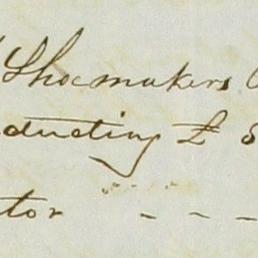 Shoemakers
ducting £
tor - - -